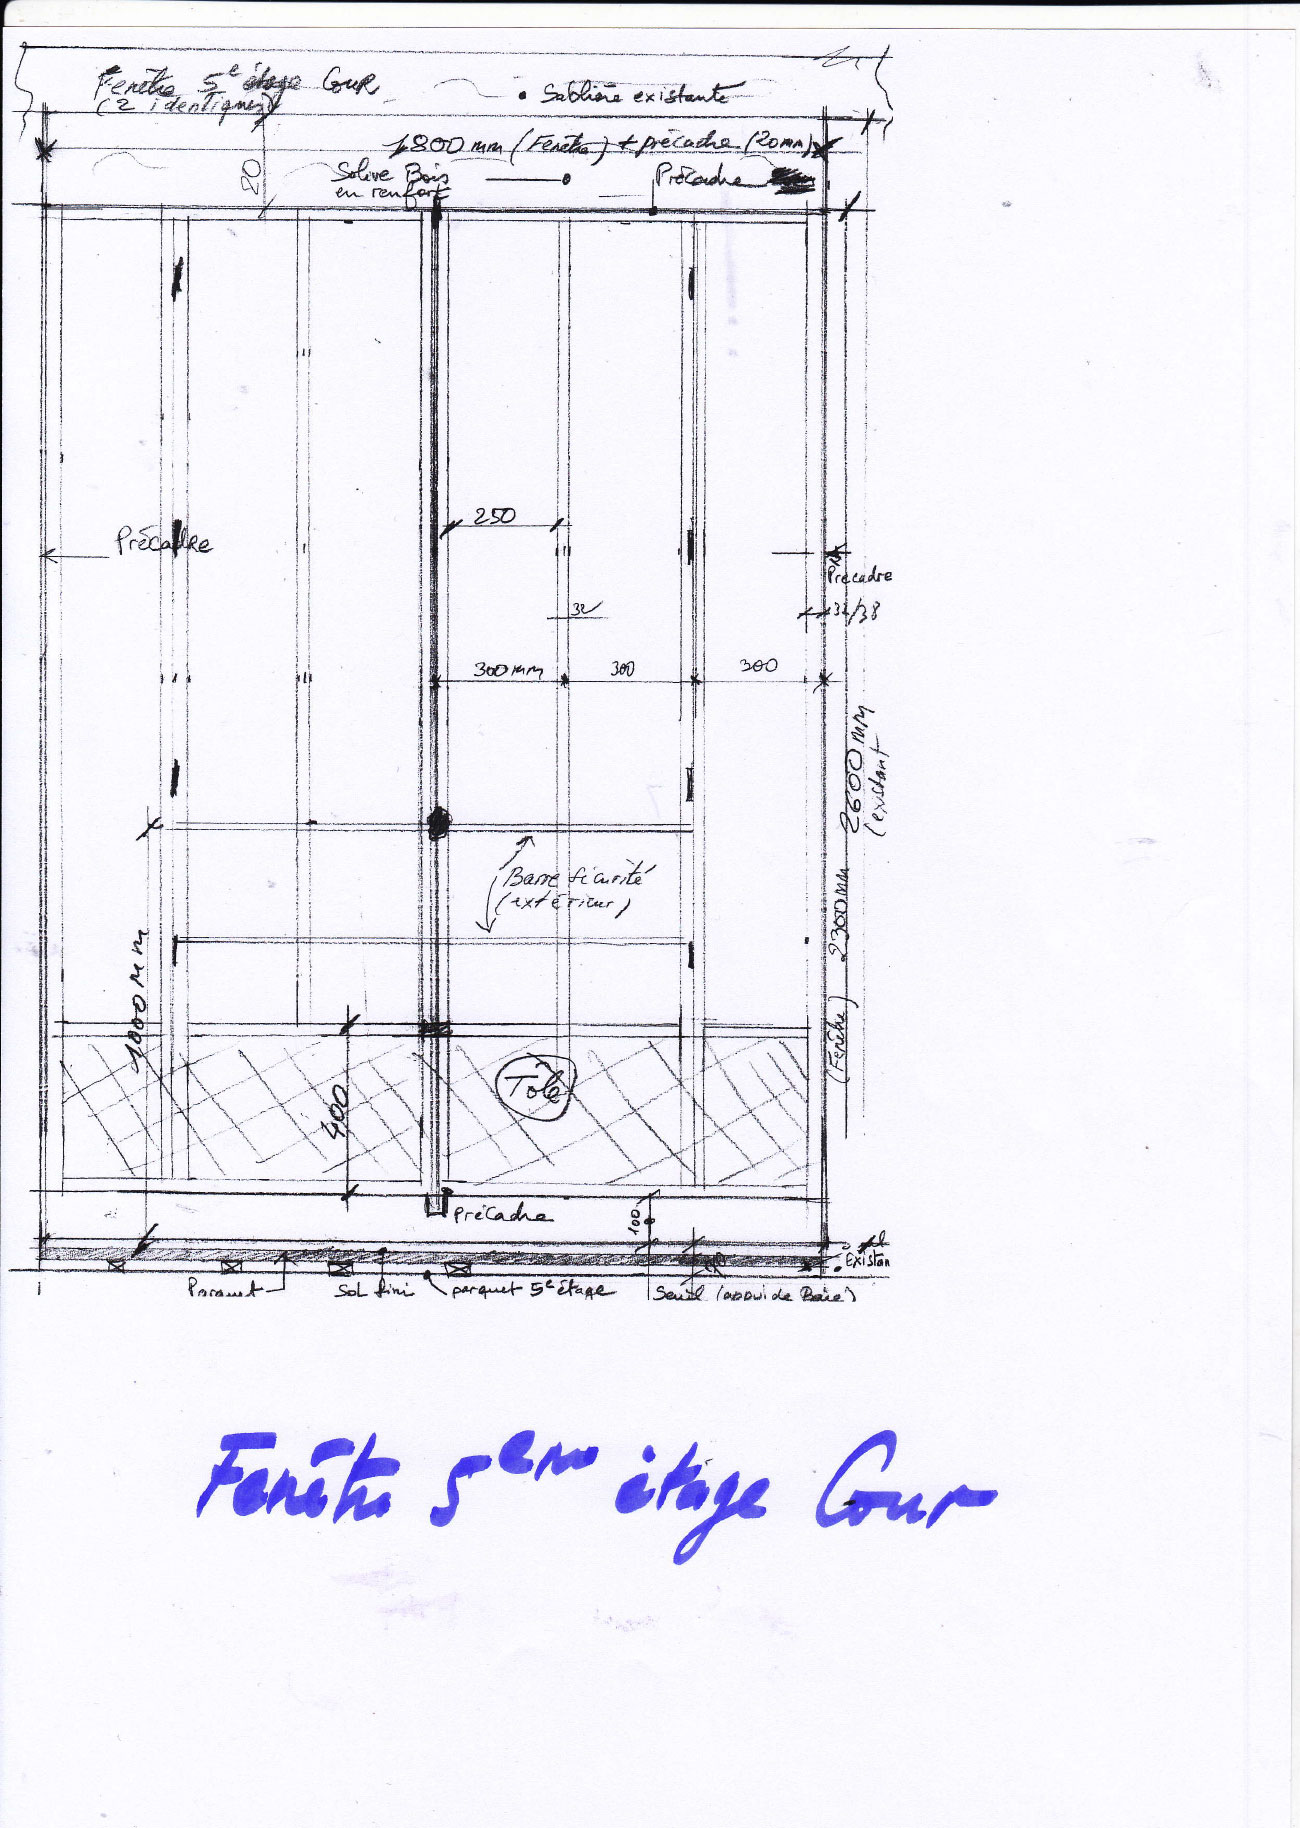 Fenêtre 5e étage Cour
(2 identiques)
• Sablière existante
1800 mm (Fenêtre) + précadre (20mm)
20
Solive Bois
en renfort
Précadre
250
Précadre
Précadre
32
32/38
300mm
300
300
2600 mm
(existant
Barre sécurité
(extérieur)
2300mm
(Fenêtre)
1000 mm
400
Tôle
Précadre
100
Existan
Parquet
Sol fini
parquet 5e étage
Seuil (appui de Baie)
Fenêtre 5eme étage Cour